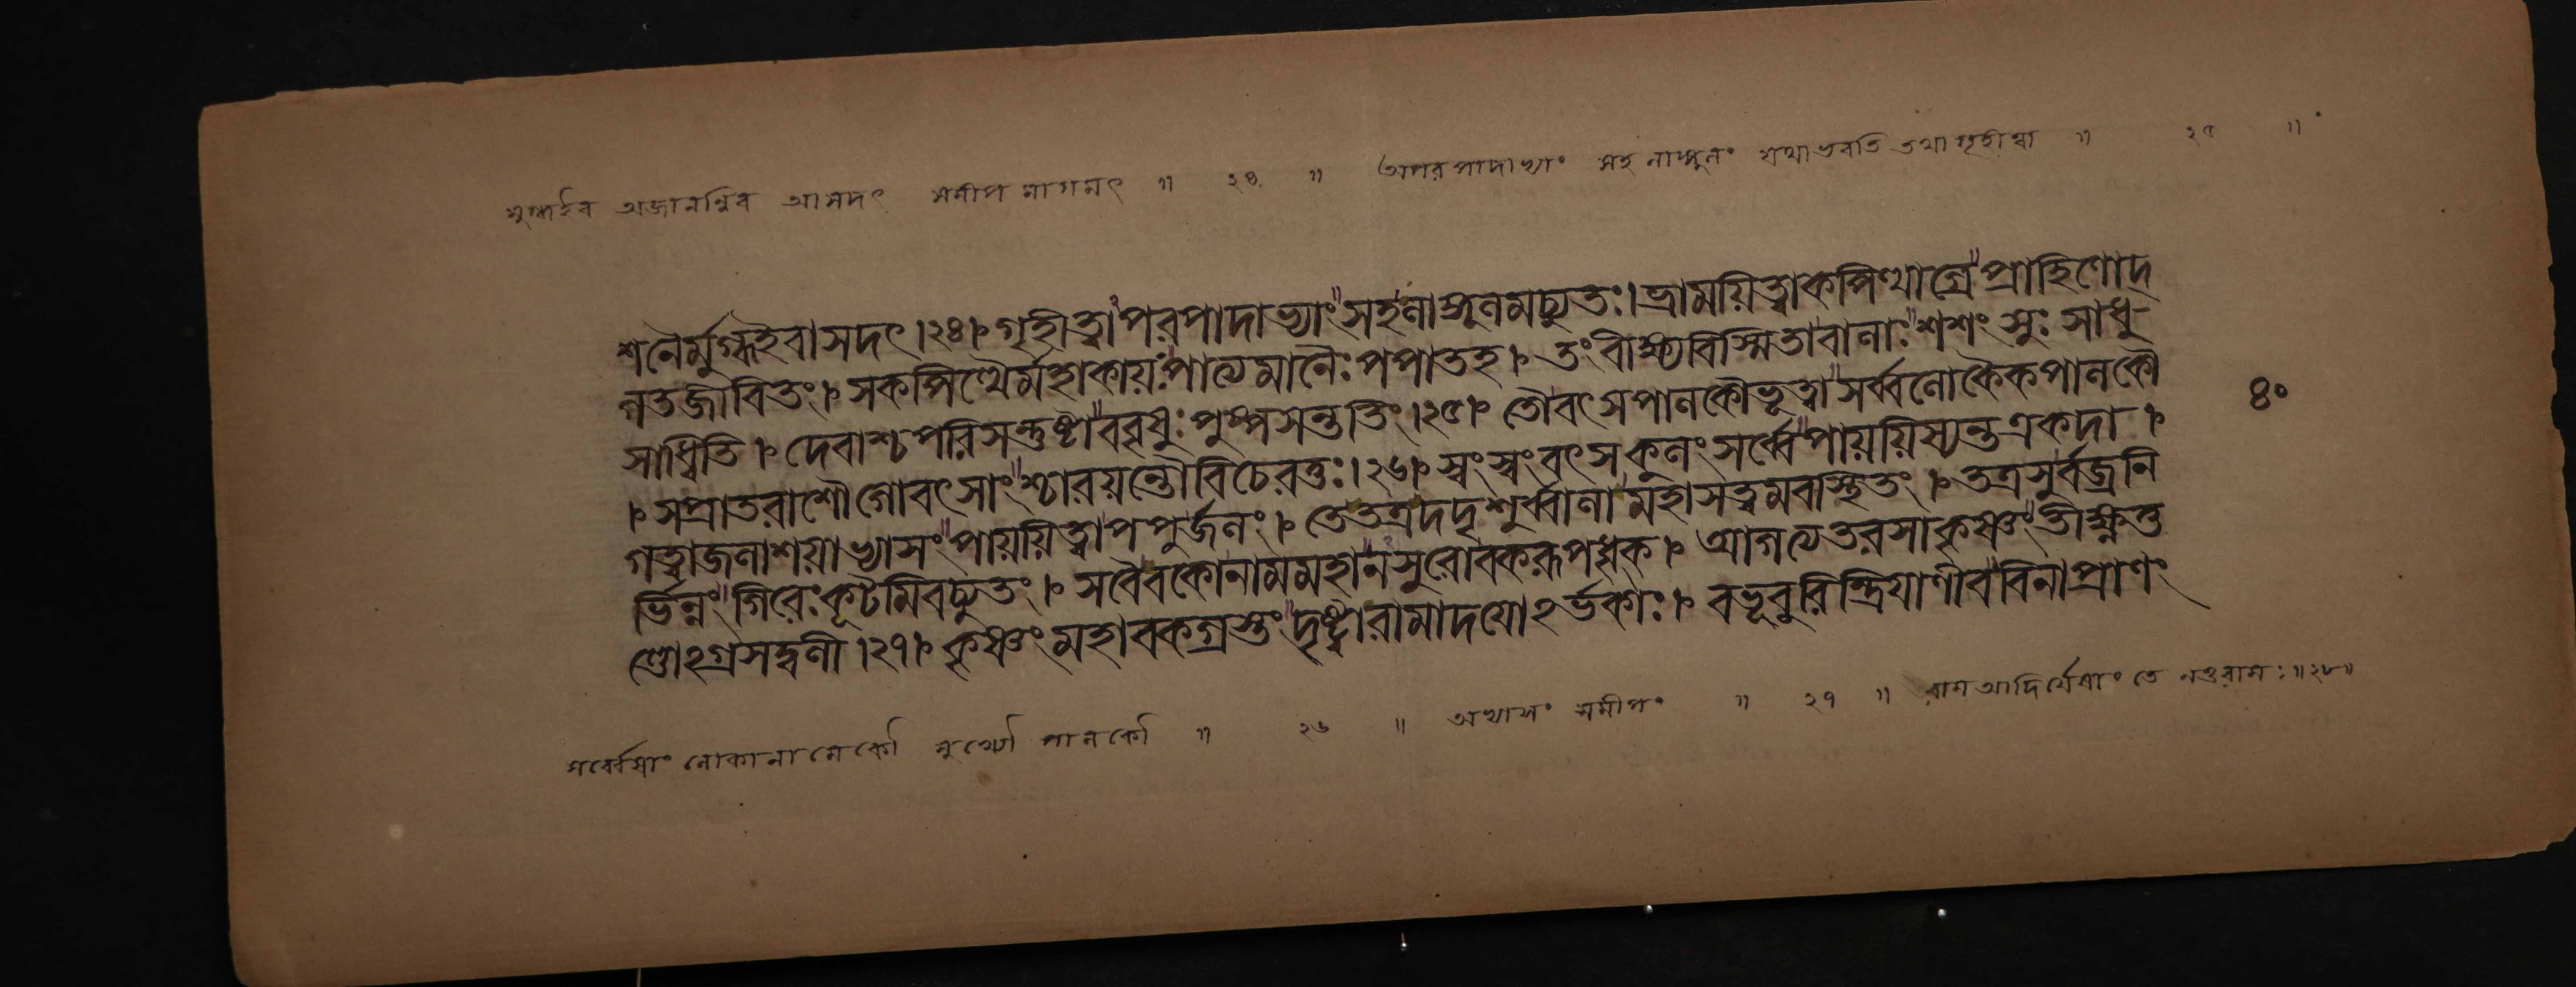 মুগ্ধইব অজানন্নিব আসদৎ সমীপ মাগমৎ ॥ ২৪ ॥ অপরপাদাভ্যাং সহ লাঙ্গুলং যথাভবতি তথা গৃহীত্বা ॥ ২৫ ॥
শনৈর্মুগ্ধইবাসদৎ ।২৪। গৃহীত্বাপরপাদাভ্যাং সহলাঙ্গুলমচ্যুতঃ। ভ্রাময়িত্বাকপিত্থাগ্রে প্রাহিণোদ্
গতজীবিতং । সকপিত্থৈর্মহাকায়ঃ পাত্যমানৈঃ পপাতহ । তং বীক্ষ্যবিস্মিতাবালাঃ শশংসুঃ সাধু-
সাধ্বিতি । দেবাশ্চপরিসন্তুষ্টাববৃষুঃ পুষ্পসন্ততিং ।২৫। তৌবৎসপালকৌভূত্বা সর্ব্বলোকৈকপালকৌ
। সপ্রাতরাশৌগোবৎসাংশ্চারয়ন্তৌবিচেরতুঃ ।২৬। স্বংস্বংবৎসকুলং সর্ব্বেপায়য়িষ্যন্তএকদা ।
গত্বাজলাশয়াভ্যাসং পায়য়িত্বাপপুর্জলং । তেতত্রদদৃশুর্ব্বালা মহাসত্ত্বমবস্থিতং । তত্রসুর্বজ্রনি
র্ভিন্নং গিরেঃকূটমিবচ্যুতং । সবৈবকোনামমহানসুরোবকরূপধৃক । আগত্যতরসাকৃষ্ণং তীক্ষ্ণতু
ণ্ডোঽগ্রসদ্বলী ।২৭। কৃষ্ণংমহাবকগ্রস্তং দৃষ্ট্বারামাদয়োঽর্ভকাঃ । বভূবুরিন্দ্রিয়াণীববিনাপ্রাণং
৪০
সর্ব্বেষাং লোকানামেকৌ মুখ্যৌ পালকৌ ॥ ২৬ ॥ অভ্যাসং সমীপং ॥ ২৭ ॥ রামআদির্যেষাং তে নতুরামঃ ॥২৮॥